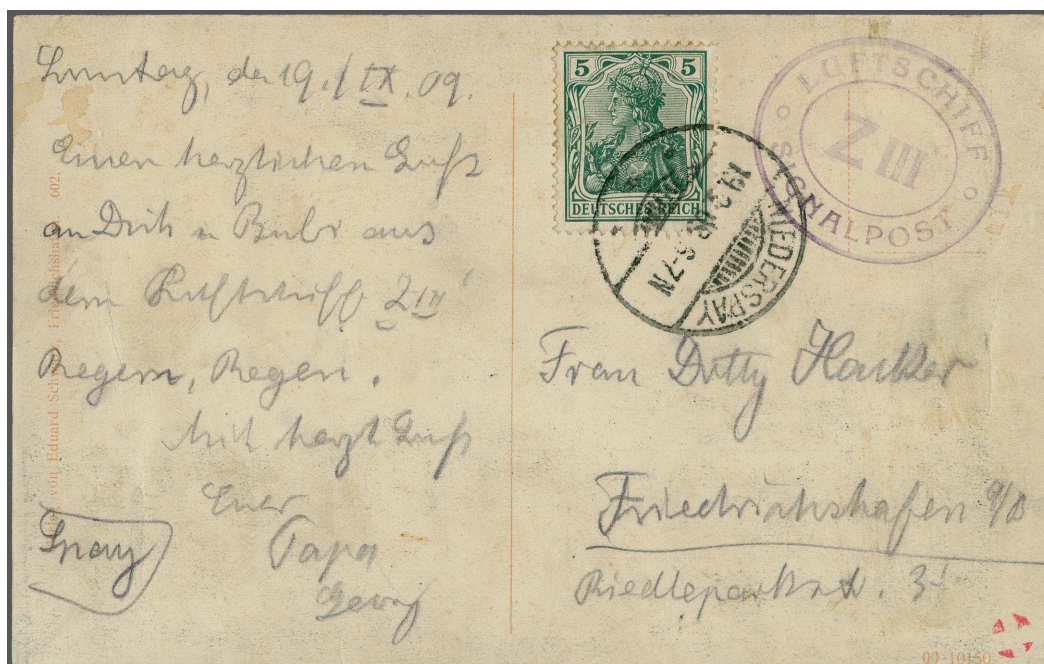 Sonntag, den 19./IX.09.
Einen herzlichen Gruß
an Dich u Bubi aus
dem Luftschiff Z III
Regen, Regen.
Mit herzl Gruß
Euer
Papa
Georg
Spay
von Eduard Friedrichshafen. 602.
5 5
DEUTSCHES REICH
NIEDERSPAY
6-7N
LUFTSCHIFF
Z III
SIGNALPOST
Frau Detty
Friedrichshafen a/B
Riedleparkstr. 31
09-10150